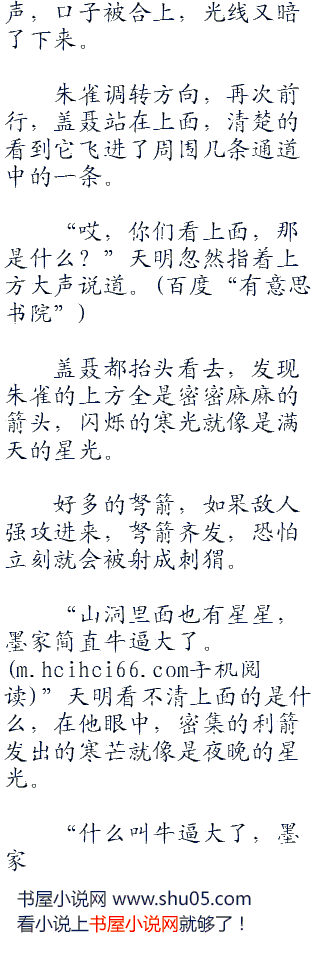 声，口子被合上，光线又暗
了下来。
朱雀调转方向，再次前
行，盖聂站在上面，清楚的
看到它飞进了周围几条通道
中的一条。
“哎，你们看上面，那
是什么？”天明忽然指着上
方大声说道。(百度“有意思
书院”)
盖聂都抬头看去，发现
朱雀的上方全是密密麻麻的
箭头，闪烁的寒光就像是满
天的星光。
好多的弩箭，如果敌人
强攻进来，弩箭齐发，恐怕
立刻就会被射成刺猬。
“山洞里面也有星星，
墨家简直牛逼大了。
(m.hcihci66.com手机阅
读)”天明看不清上面的是什
么，在他眼中，密集的利箭
发出的寒芒就像是夜晚的星
光。
“什么叫牛逼大了，墨
家
书屋小说网 www.shu05.com
看小说上书屋小说网就够了！